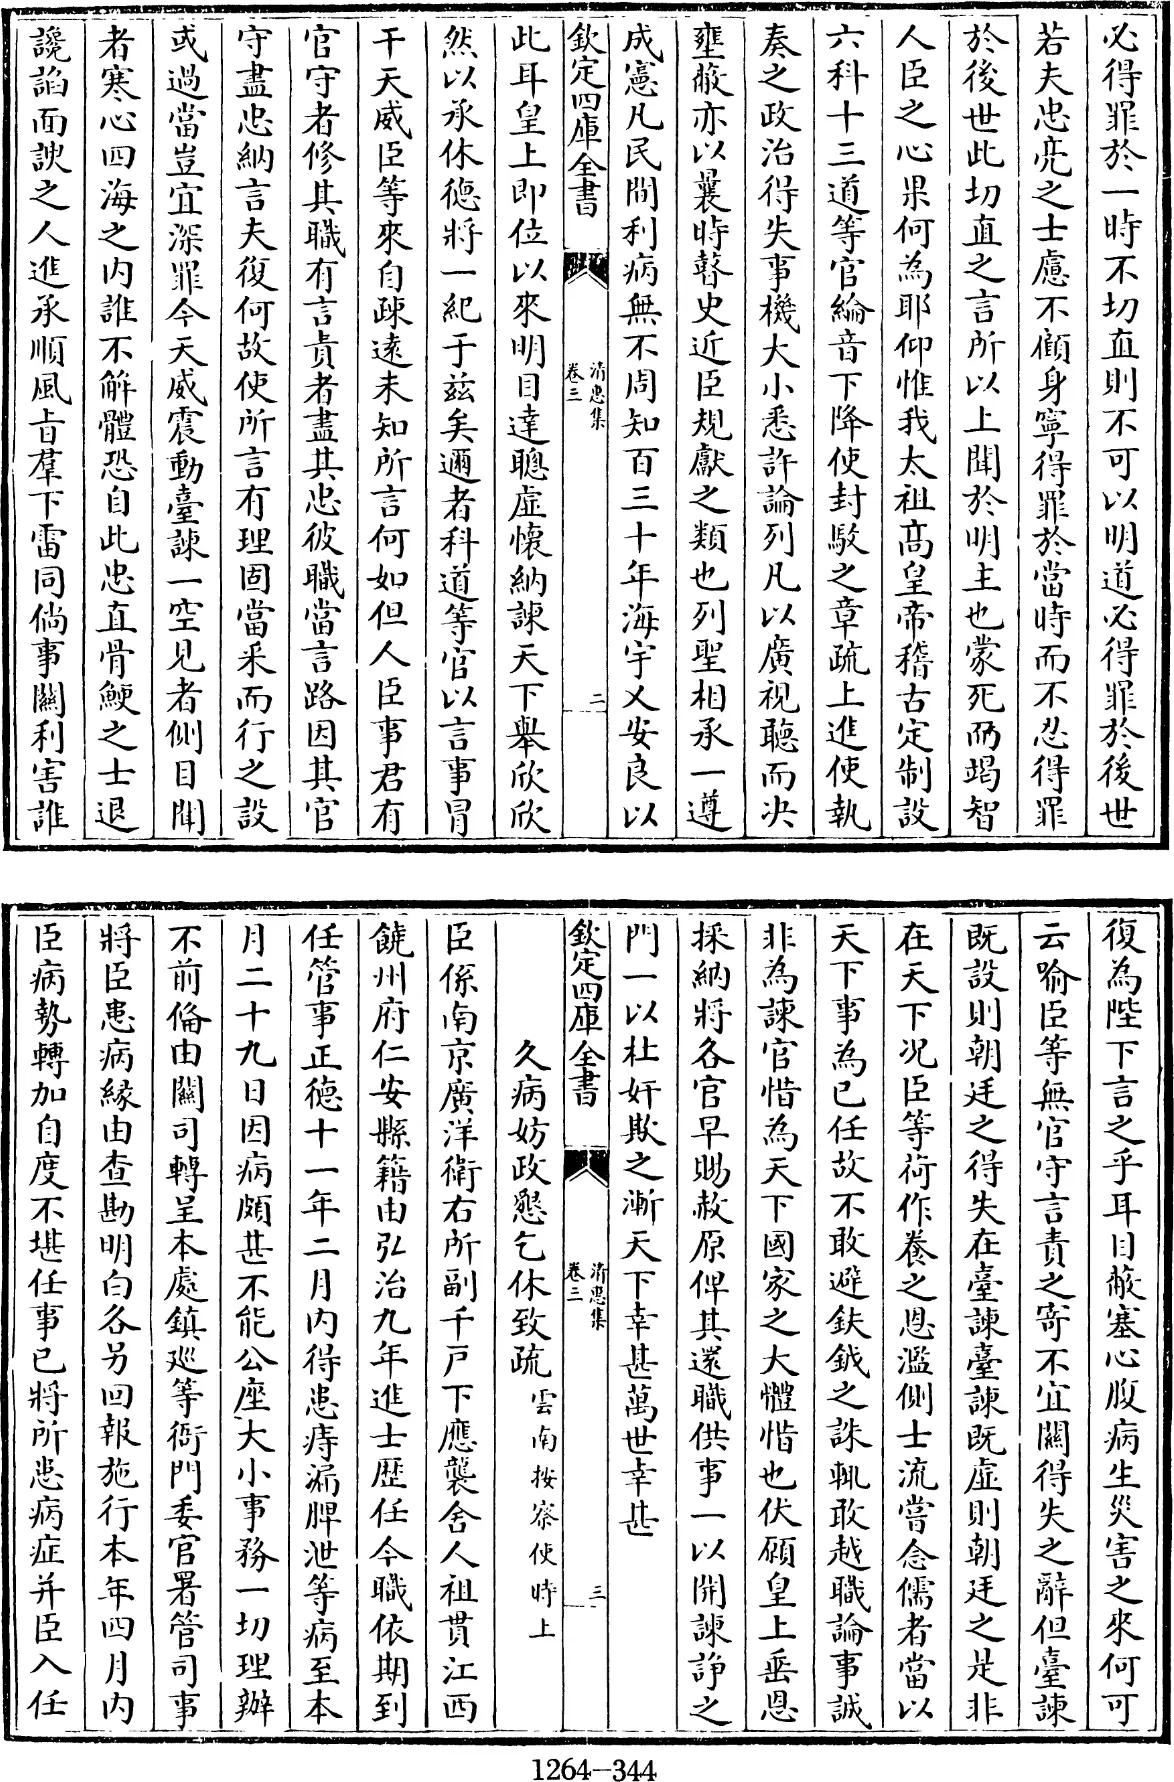 必得罪於一時不切直則不可以明道必得罪於後世
若夫忠亮之士慮不顧身寧得罪於當時而不忍得罪
於後世此切直之言所以上聞於明主也蒙死而竭智
人臣之心果何為耶仰惟我太祖高皇帝稽古定制設
六科十三道等官綸音下降使封駁之章疏上進使執
奏之政治得失事機大小悉許論列凡以廣視聽而决
壅蔽亦以曩時瞽史近臣規獻之類也列聖相承一遵
成憲凡民間利病無不周知百三十年海宇乂安良以
欽定四庫全書
清惠集
卷三
二
此耳皇上即位以來明目達聰虛懷納諫天下舉欣欣
然以承休德將一紀于兹矣邇者科道等官以言事冒
干天威臣等來自疎遠未知所言何如但人臣事君有
官守者修其職有言責者盡其忠彼職當言路因其官
守盡忠納言夫復何故使所言有理固當采而行之設
或過當豈宜深罪今天威震動臺諫一空見者側目聞
者寒心四海之內誰不解體恐自此忠直骨鯁之士退
讒諂面諛之人進承順風旨羣下雷同倘事關利害誰
復為陛下言之乎耳目蔽塞心腹病生災害之來何可
云喻臣等無官守言責之寄不宜關得失之辭但臺諫
既設則朝廷之得失在臺諫臺諫既虛則朝廷之是非
在天下况臣等荷作養之恩濫側士流嘗念儒者當以
天下事為已任故不敢避鈇鉞之誅輒敢越職論事誠
非為諫官惜為天下國家之大體惜也伏願皇上垂恩
採納將各官早賜赦原俾其還職供事一以開諫諍之
門一以杜奸欺之漸天下幸甚萬世幸甚
欽定四庫全書
清惠集
卷三
三
久病妨政懇乞休致疏雲南按察使時上
臣係南京廣洋衛右所副千戸下應襲舍人祖貫江西
饒州府仁安縣籍由弘治九年進士歴任今職依期到
任管事正德十一年二月內得患痔漏脾泄等病至本
月二十九日因病頗甚不能公座大小事務一切理辦
不前俻由關司轉呈本處鎮廵等衙門委官署管司事
將臣患病緣由查勘明白各另回報施行本年四月內
臣病勢轉加自度不堪任事已將所患病症并臣入任
1264-344